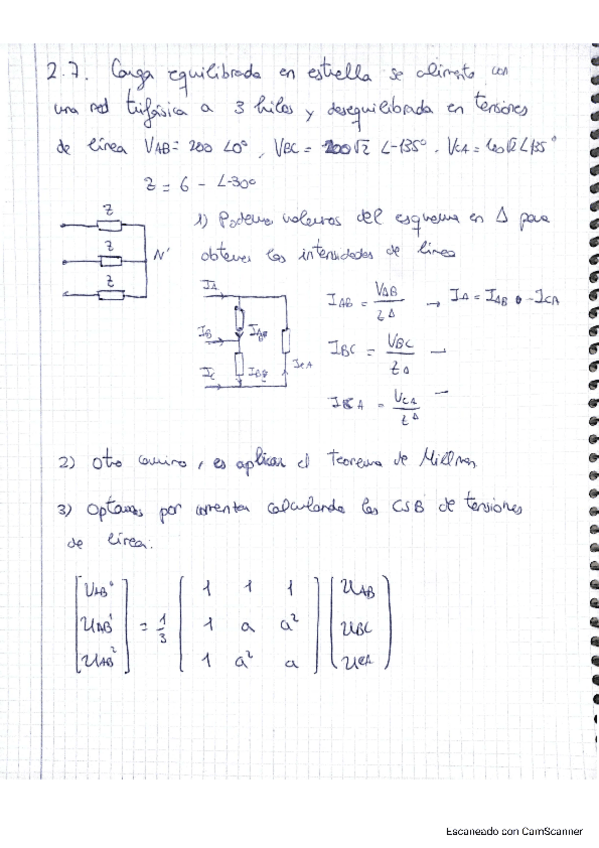 2.7. Carga equilibrada en estrella se alimenta con
una red trifásica a 3 hilos y desequilibrada en tensiones
de línea VAB = 200 ∠0°, VBC = 200√2 ∠-135°, VCA = √2 ∠135°
Z = 6 - ∠-30°
Z
Z
Z
N'
1) Podemos valernos del esquema en Δ para
obtener las intensidades de línea
IA
IB
IC
ICA
IAB = VAB / ZΔ → IA = IAB - ICA
IBC = VBC / ZΔ →
ICA = VCA / ZΔ →
2) Otro camino, es aplicar el Teorema de Millman
3) Optamos por comenzar calculando las CSB de tensiones
de línea:
[UAB⁰] = 1/3 [1 1 1] [UAB]
[UAB¹] [1 a a²] [UBC]
[UAB²] [1 a² a] [UCA]
Escaneado con CamScanner